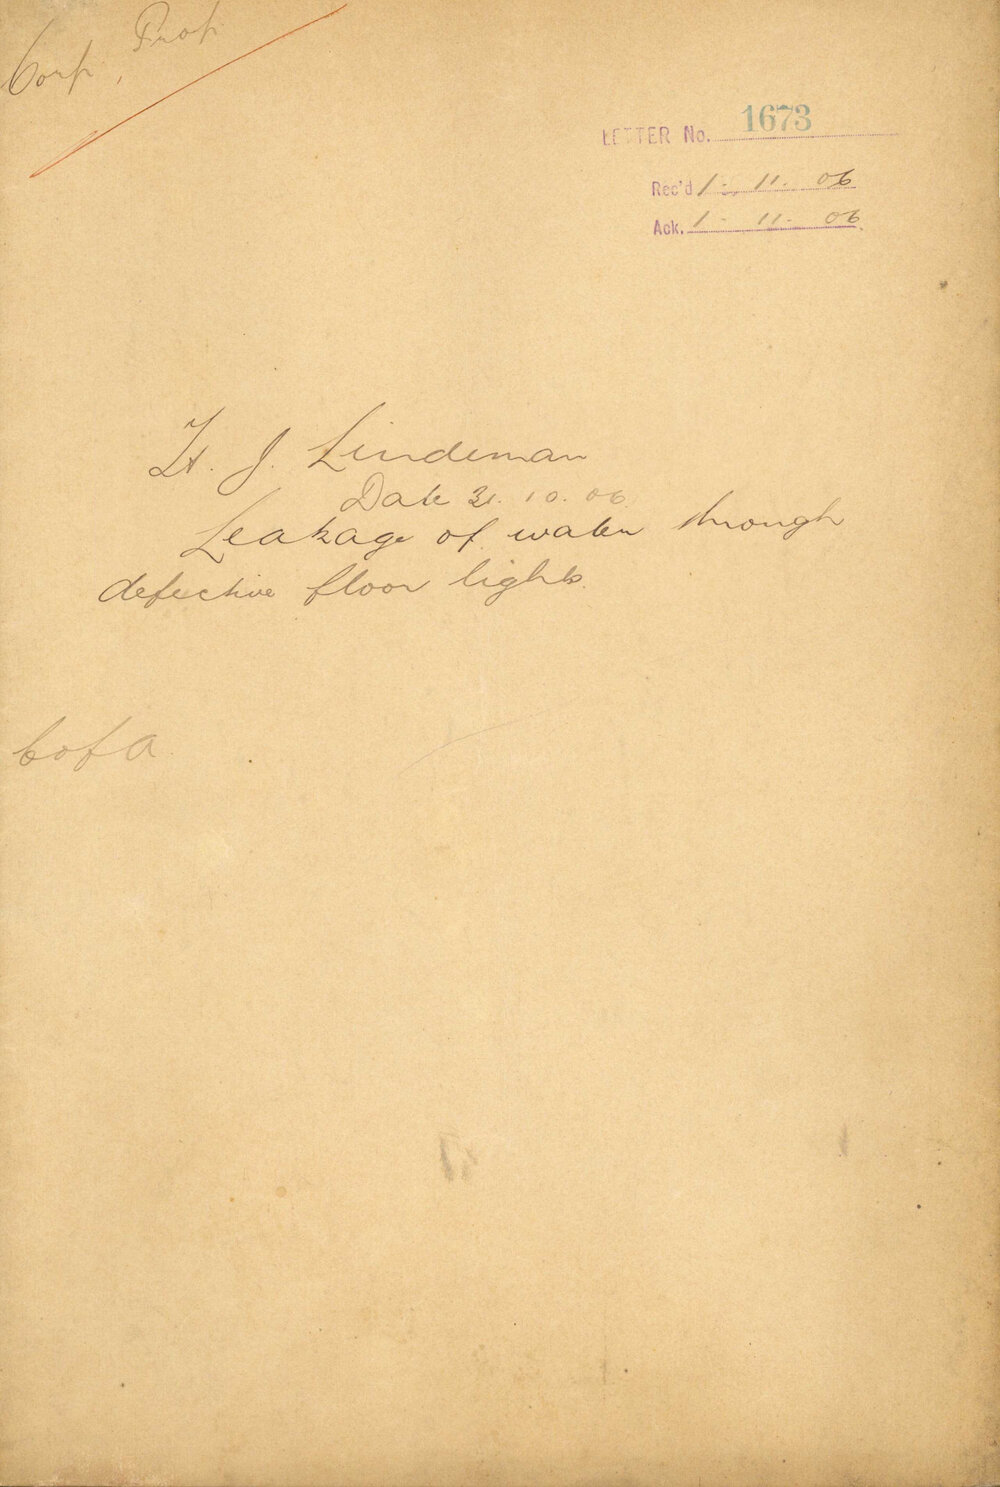 Corp, Prop
LETTER No. 1673
Rec'd 1. 11. 06
Ack. 1. 11. 06.
H. J. Lindeman
Date 31. 10. 06
Leakage of water through
defective floor lights.
C of A